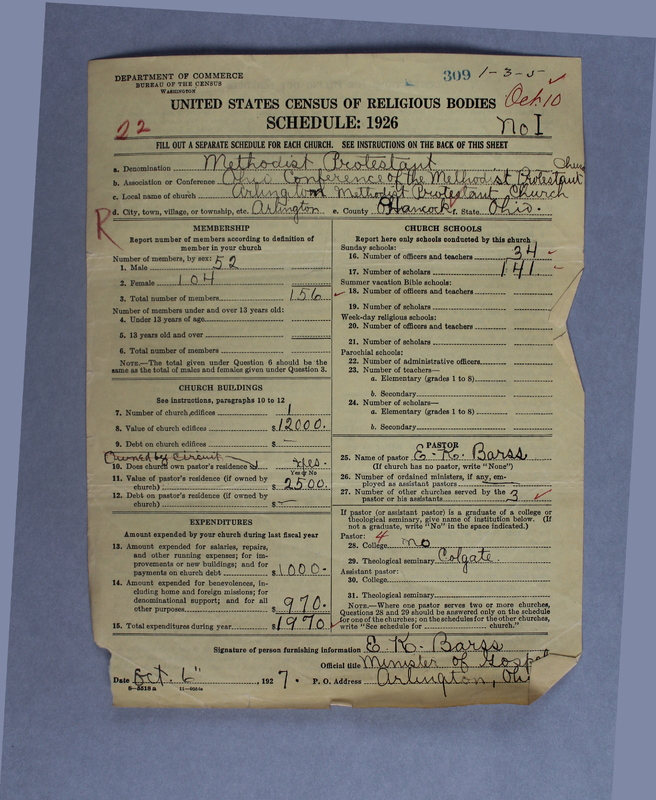 DEPARTMENT OF COMMERCE
BUREAU OF THE CENSUS
WASHINGTON
309 1-3-5
UNITED STATES CENSUS OF RELIGIOUS BODIES
Oct. 10
SCHEDULE: 1926
22
No I
FILL OUT A SEPARATE SCHEDULE FOR EACH CHURCH. SEE INSTRUCTIONS ON THE BACK OF THIS SHEET
a. Denomination Methodist Protestant
b. Association or Conference Ohio Conference of the Methodist Protestant
c. Local name of church Arlington Methodist Protestant Church
d. City, town, village, or township, etc. Arlington e. County Hancock f. State Ohio.
R
MEMBERSHIP
Report number of members according to definition of
member in your church
Number of members, by sex:
1. Male 52
2. Female 104
3. Total number of members 156
Number of members under and over 13 years old:
4. Under 13 years of age
5. 13 years old and over
6. Total number of members
NOTE.—The total given under Question 6 should be the
same as the total of males and females given under Question 3.
CHURCH BUILDINGS
See instructions, paragraphs 10 to 12
7. Number of church edifices 1
8. Value of church edifices $12000.
9. Debt on church edifices $ —
Owned by Circuit
10. Does church own pastor's residence Yes.
Yes or No
11. Value of pastor's residence (if owned by
church) $2500.
12. Debt on pastor's residence (if owned by
church) $ —
EXPENDITURES
Amount expended by church during last fiscal year
13. Amount expended for salaries, repairs,
and other running expenses; for im-
provements or new buildings; and for
payments on church debt $1000.
14. Amount expended for benevolences, in-
cluding home and foreign missions; for
denominational support; and for all
other purposes. $970.
15. Total expenditures during year $1970
CHURCH SCHOOLS
Report here only schools conducted by this church
Sunday schools:
16. Number of officers and teachers 34
17. Number of scholars 141
Summer vacation Bible schools:
18. Number of officers and teachers
19. Number of scholars
Week-day religious schools:
20. Number of officers and teachers
21. Number of scholars
Parochial schools:
22. Number of administrative officers
23. Number of teachers—
a. Elementary (grades 1 to 8)
b. Secondary
24. Number of scholars—
a. Elementary (grades 1 to 8)
b. Secondary
PASTOR
25. Name of pastor E. K. Barss
(If church has no pastor, write "None")
26. Number of ordained ministers, if any, em-
ployed as assistant pastors
27. Number of other churches served by the
pastor or his assistants 3
If pastor (or assistant pastor) is a graduate of a college or
theological seminary, give name of institution below. (If
not a graduate, write "No" in the space indicated.)
Pastor: 4
28. College no
29. Theological seminary Colgate.
Assistant pastor:
30. College
31. Theological seminary
NOTE.—Where one pastor serves two or more churches,
Questions 28 and 29 should be answered only on the schedule
for one of the churches; on the schedules for the other churches,
write "See schedule for church."
Signature of person furnishing information E. K. Barss
Official title Minister of Gospel
Date Oct. 6", 1927. P. O. Address Arlington, Oh
6—5518 a